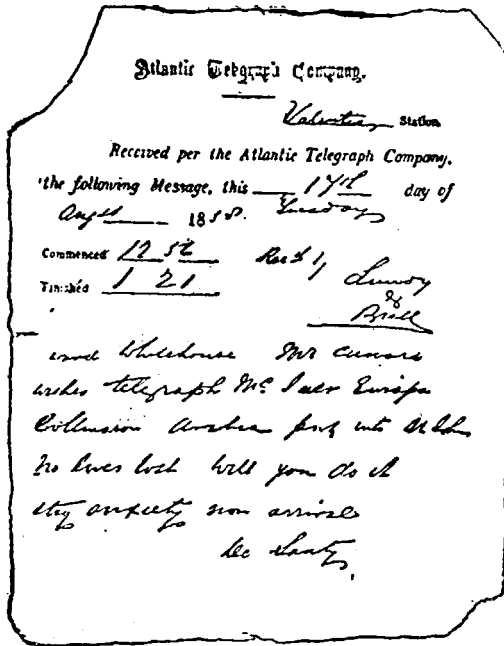 Atlantic Telegraph Company.
Valentia Station
Received per the Atlantic Telegraph Company,
the following Message, this 17th day of
Augt 1858. Tuesday
Commenced 12 56 Recd by
Finished 1 21 Lundy
&
Brill
Whitehouse Mr Cunard
wishes telegraph McIver Europa
Collusion Arabia put into St Johns
no lives lost will you do it
stay anxiety non arrival
De Sauty